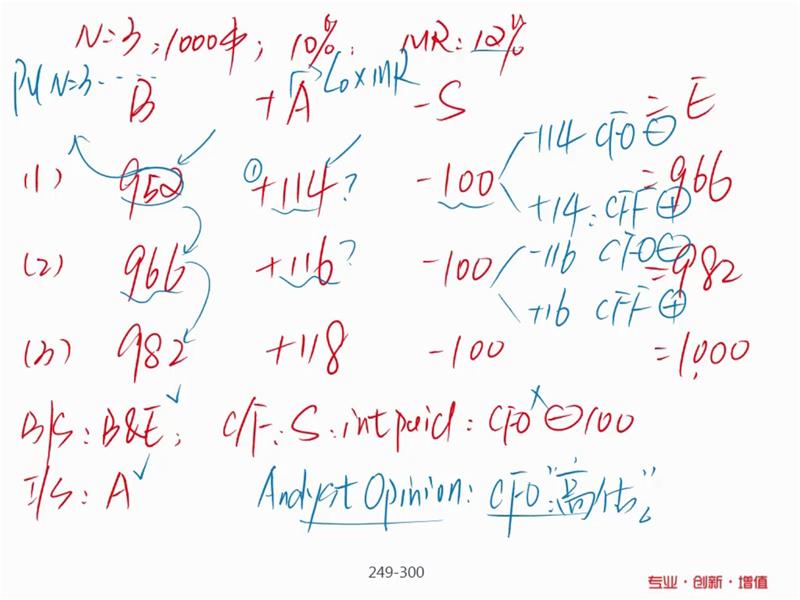 N=3; 1000中; 10%; MR: 12%
PV N=3 ... B + A → L0 × MR - S = E
(1) 952 ① +114? -100 -114 CFO ⊖ +14: CFF ⊕ = 966
(2) 966 +116? -100 -116 CFO ⊖ +16 CFF ⊕ = 982
(3) 982 +118 -100 = 1,000
B/S: B&E ✓; C/F: S: int paid: CFO ⊖ 100
I/S: A ✓ Analyst Opinion: CFO "高估"。
249-300
专业·创新·增值